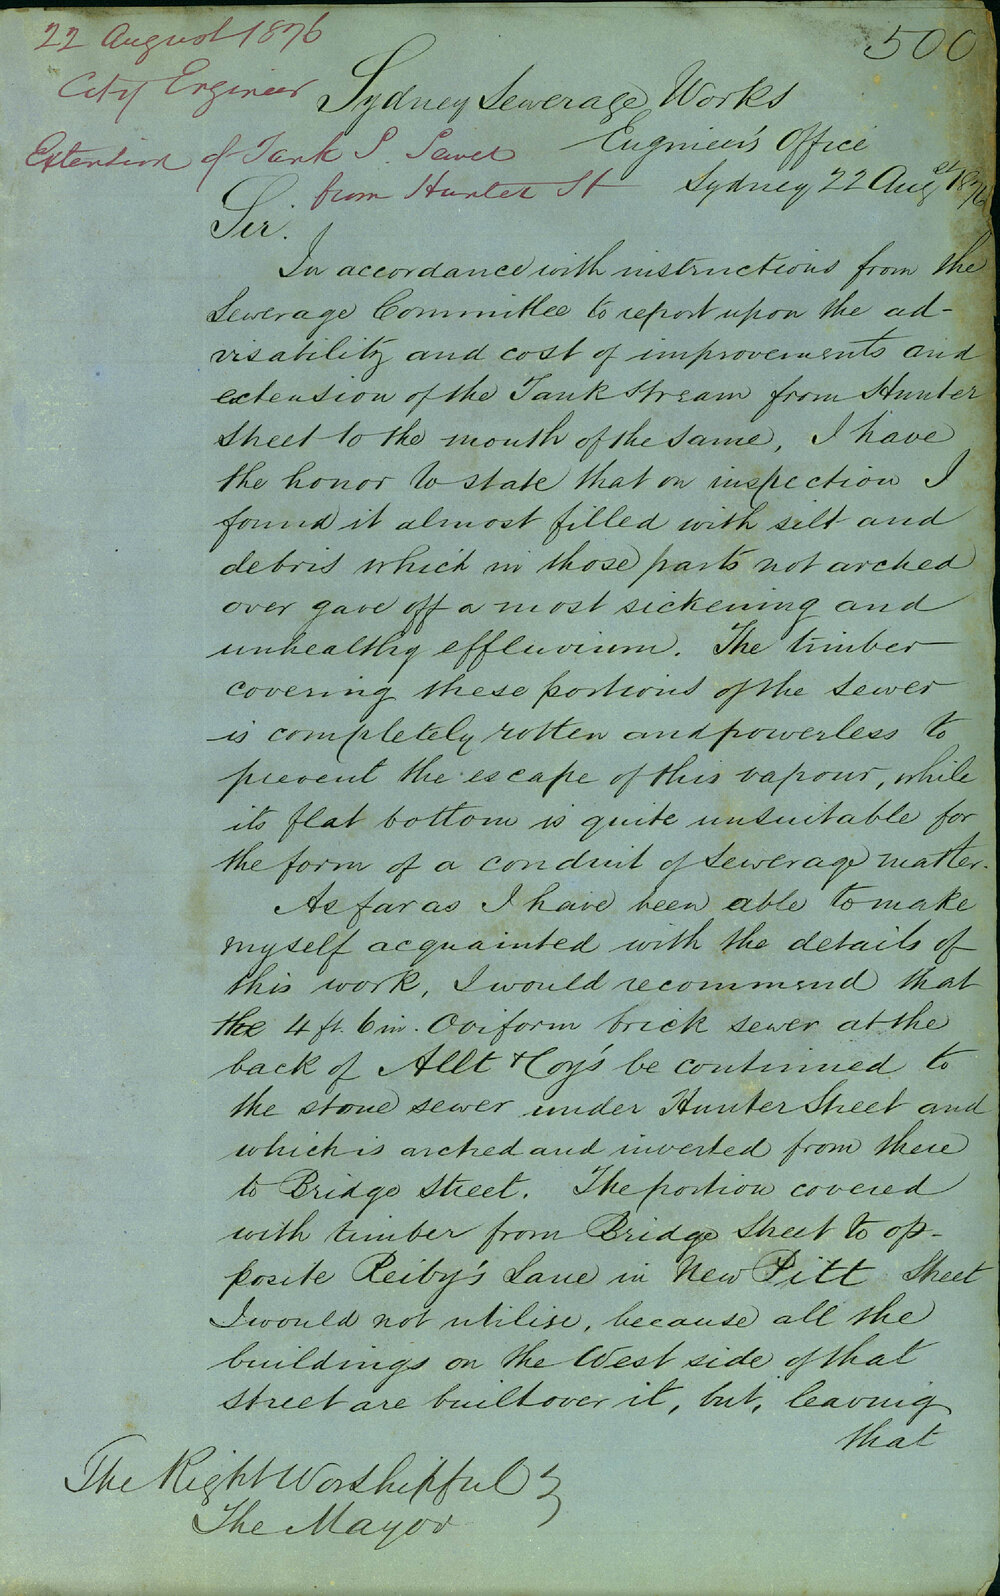 22 August 1876
500
City Engineer
Sydney Sewerage Works
Engineer's Office
Extension of Tank S. Sewer
from Hunter St
Sydney 22 Augst 1876
Sir.
In accordance with instructions from the
Sewerage Committee to report upon the ad-
visability and cost of improvements and
extension of the Tank stream from Hunter
Street to the mouth of the same, I have
the honor to state that on inspection I
found it almost filled with silt and
debris which in those parts not arched
over gave off a most sickening and
unhealthy effluvium. The timber
covering these portions of the sewer
is completely rotten and powerless to
prevent the escape of this vapour, while
its flat bottom is quite unsuitable for
the form of a conduit of sewerage matter.
As far as I have been able to make
myself acquainted with the details of
this work, I would recommend that
the 4 ft. 6 in. Oviform brick sewer at the
back of Allt & Coy's be continued to
the stone sewer under Hunter Street and
which is arched and inverted from there
to Bridge Street. The portion covered
with timber from Bridge Street to op-
posite Reiby's Lane in New Pitt Street
I would not utilise, because all the
buildings on the West side of that
street are built over it, but, leaving
that
The Right Worshipful }
The Mayor